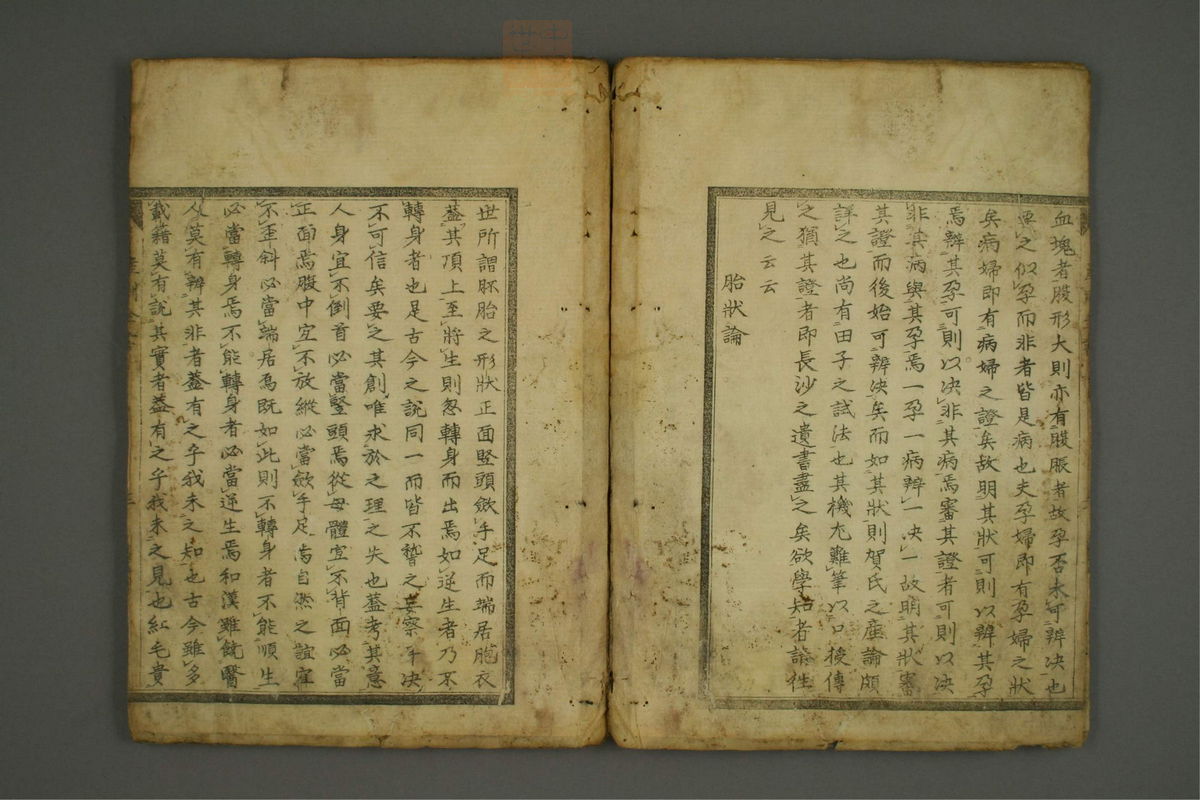 血塊者腹形大則亦有腹脹者故孕否未可辨决也
之似孕而非者皆是病也夫孕婦即有孕婦之狀
矣病婦即有病婦之證矣故明其狀可則以辨其孕
焉辨其孕可則以决非其病焉審其證者可則以决
非其病與其孕焉一孕一病辨一决一故明其狀審
其證而後始可辨决矣而如其狀則賀氏之産論頗
詳之也尚有田子之試法也其機尤難筆以口授傳
之猶其證者即長沙之遺書盡之矣欲學知者請往
見之云云
胎狀論
世所謂胚胎之形狀正面竪頭斂手足而端居胞衣
蓋其頂上至將生則忽轉身而出焉如逆生者乃不
轉身者也是古今之說同一而皆不督之妄察乎决
不可信矣要之其創唯求於之理之失也蓋考其意
人身宜不倒首必當竪頭焉從母體宜不背面必當
正面焉腹中宜不放縱必當斂手足焉自然之誼宜
不歪斜必當端居焉既如此則不轉身者不能順生
必當轉身焉不能轉身者必當逆生焉和漢雖饒醫
人莫有辨其非者蓋有之乎我未之知也古今雖多
載籍莫有說其實者蓋有之乎我未之見也紅毛貴